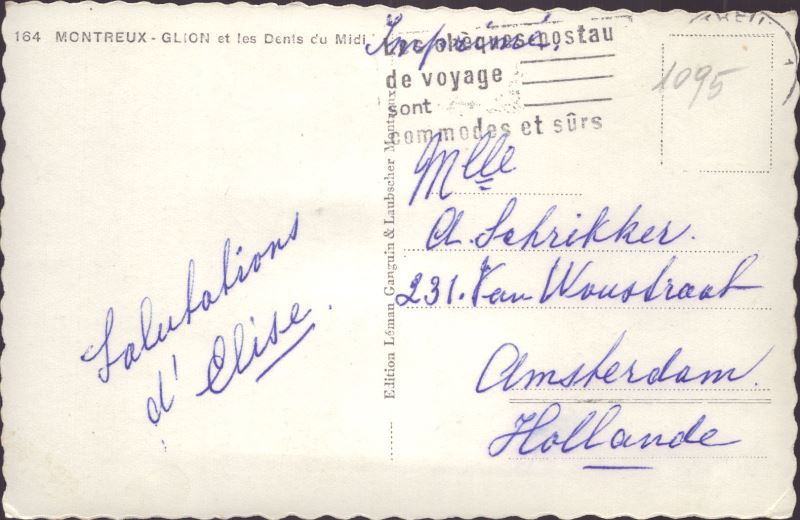 164 MONTREUX - GLION et les Dents du Midi
Imprimé.
Les chèques postau
de voyage
sont
commodes et sûrs
1095
Edition Léman, Ganguin & Laubscher Montreux
Mlle
A. Schrikker.
231. Van Woustraat
Amsterdam.
Hollande
Salutations
d' Elise.